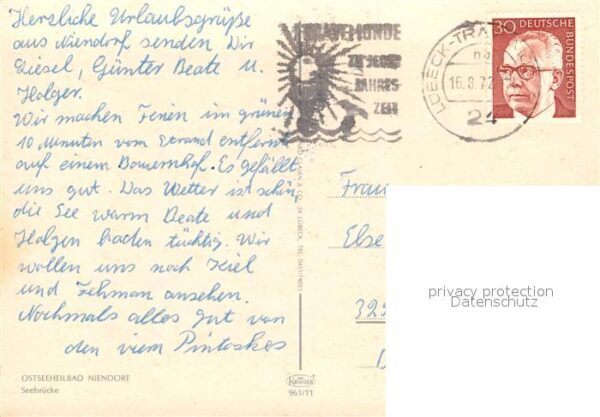 Herzliche Urlaubsgrüße
aus Niendorf senden Dir
Liesel, Günter Beate u.
Holger.
Wir machen Ferien im grünen
10 Minuten vom Strand entfernt
auf einem Bauernhof. Es gefällt
uns gut. Das Wetter ist schön,
die See warm Beate und
Holger baden tüchtig. Wir
wollen uns noch Kiel
und Fehmarn ansehen.
Nochmals alles gut von
den viern
OSTSEEHEILBAD NIENDORF
Seebrücke
TRAVEMÜNDE
ZU JEDER
JAHRES-
ZEIT
LÜBECK-TRA
16.8.72
24
30 DEUTSCHE
BUNDESPOST
& CO., 24 LÜBECK, TEL.
Frau
Else
322
Krüger
961/11
privacy protection
Datenschutz